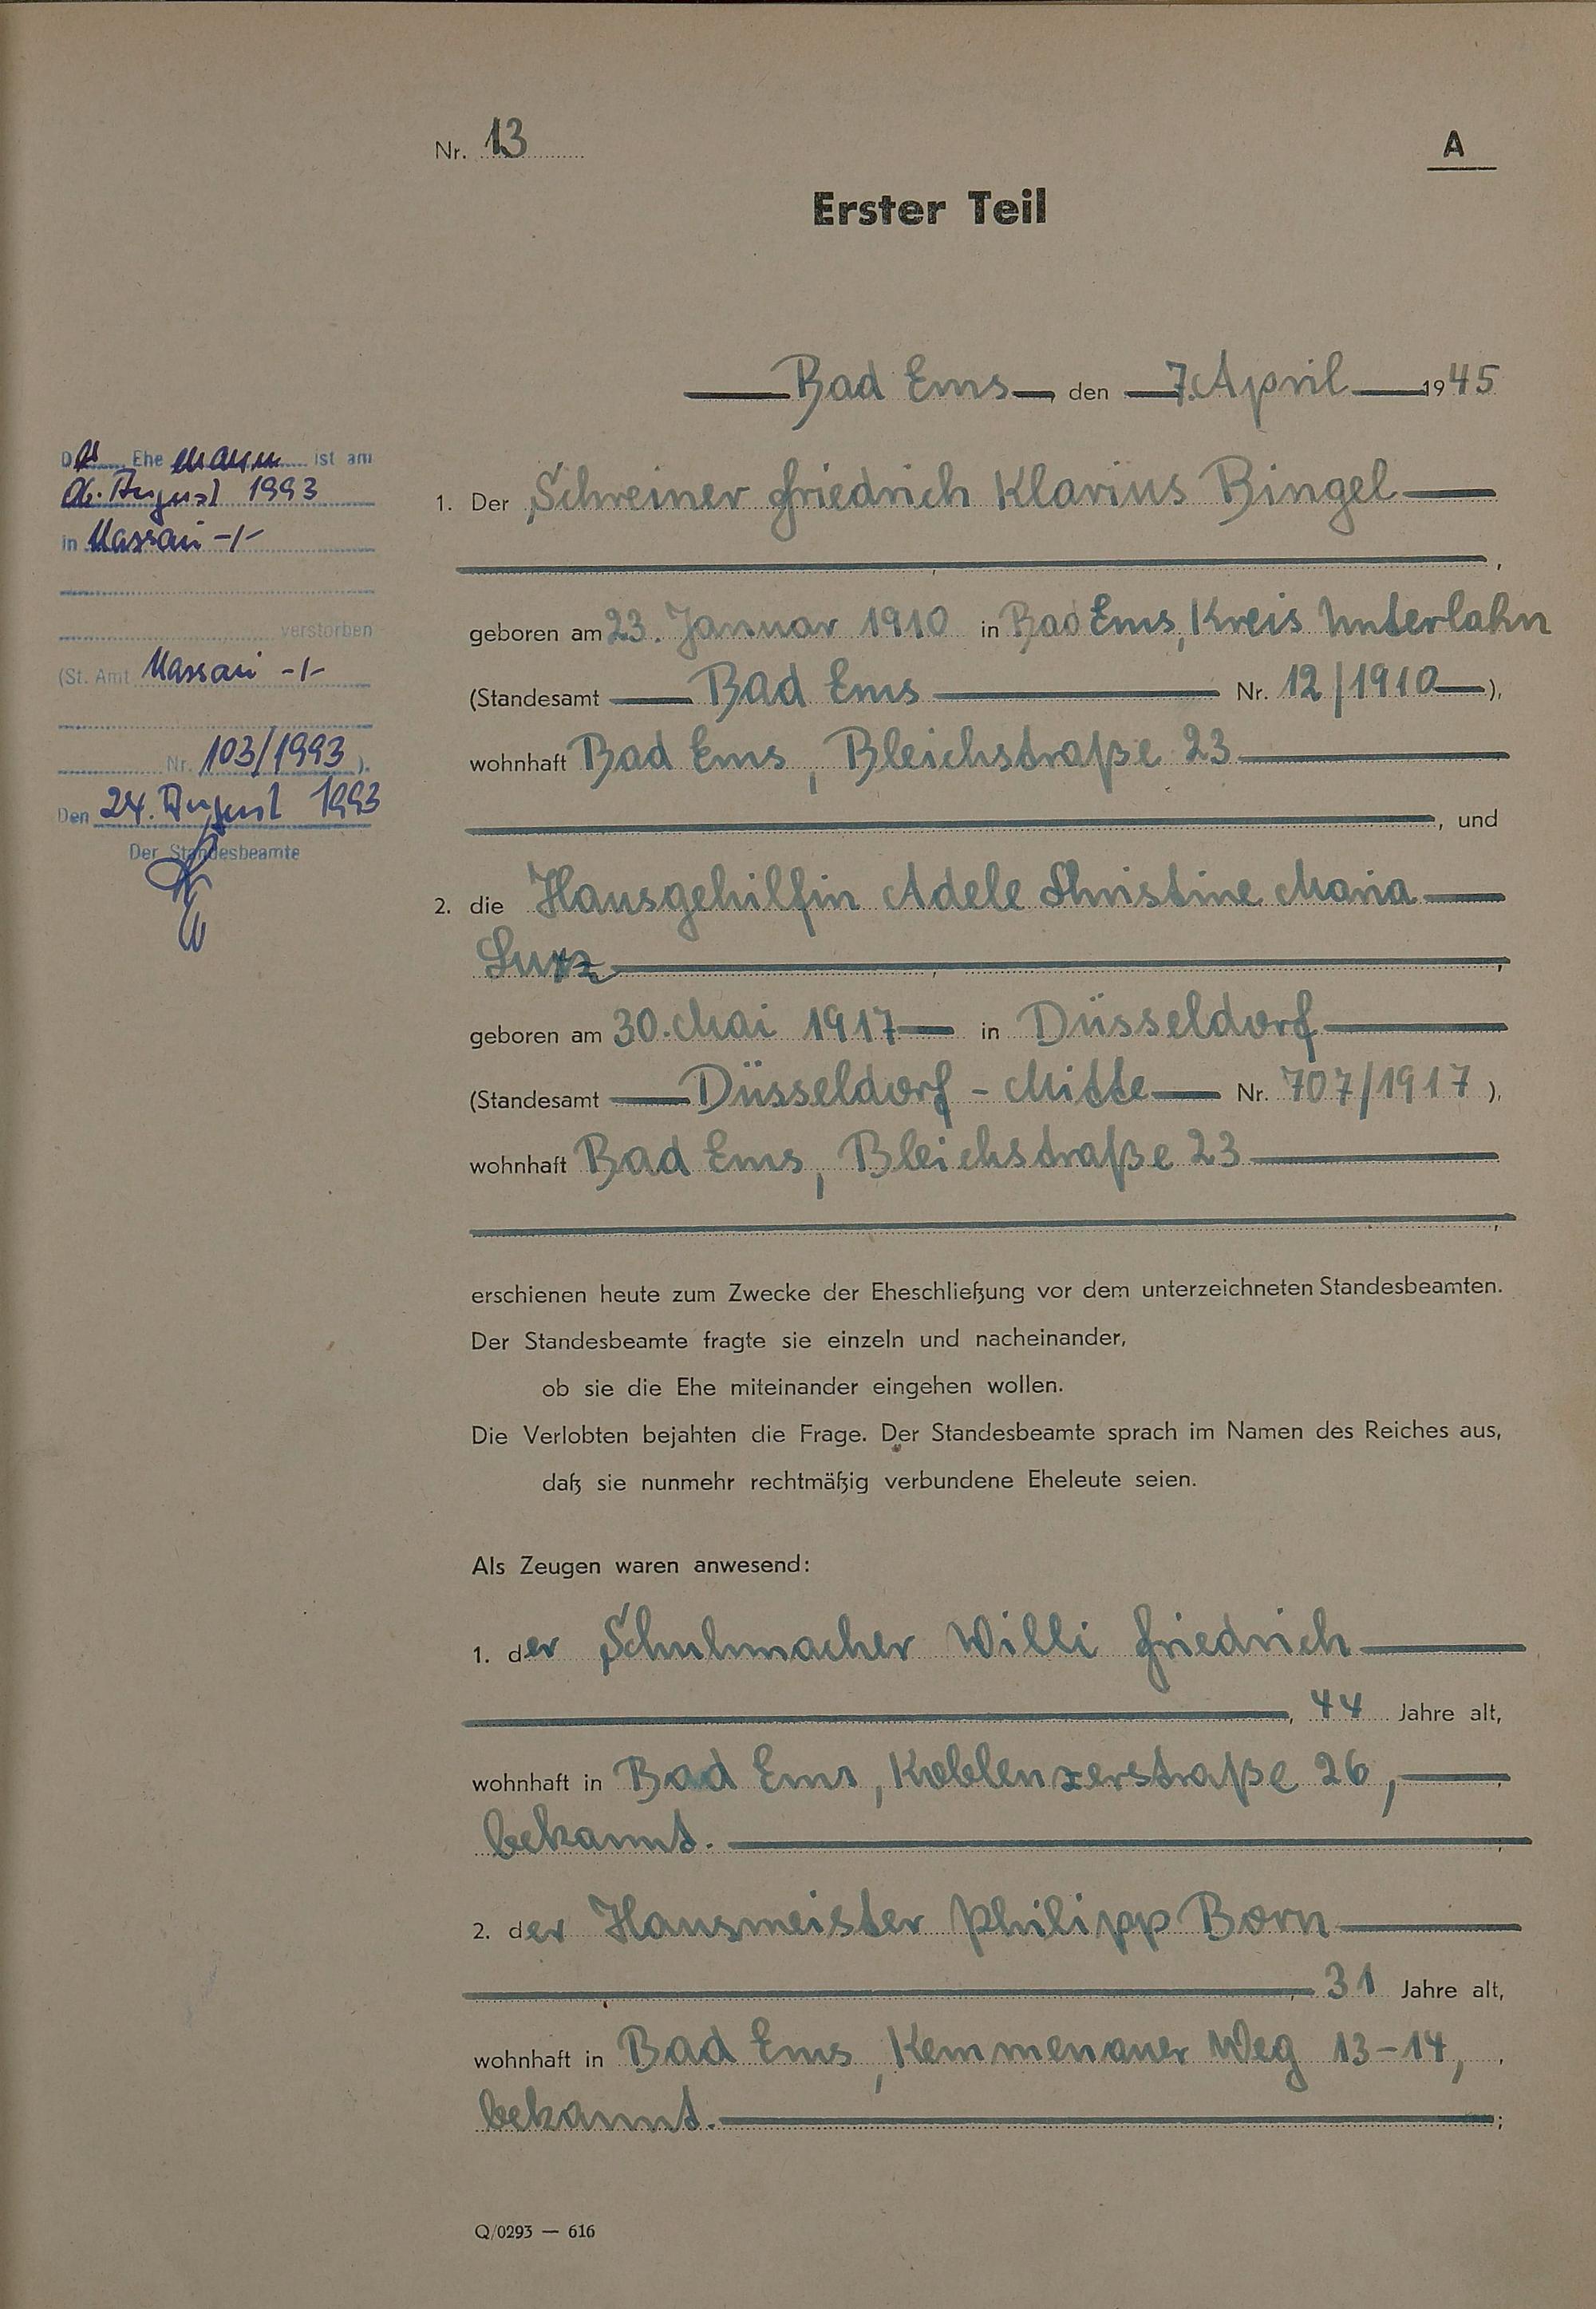 Nr. 13
A
Erster Teil
Bad Ems, den 7. April 1945
Der Ehemann ist am
06. August 1993
in Nassau -/-
verstorben
(St. Amt Nassau -/-
Nr. 103/1993 ).
Den 24. August 1993
Der Standesbeamte
1. Der Schreiner Friedrich Klarius Bingel
,
geboren am 23. Januar 1910 in Bad Ems, Kreis Unterlahn
(Standesamt Bad Ems Nr. 12/1910 ),
wohnhaft Bad Ems, Bleichstraße 23
, und
2. die Hausgehilfin Adele Christine Maria
,
geboren am 30. Mai 1917 in Düsseldorf
(Standesamt Düsseldorf - Mitte Nr. 707/1917 ),
wohnhaft Bad Ems, Bleichstraße 23
,
erschienen heute zum Zwecke der Eheschließung vor dem unterzeichneten Standesbeamten.
Der Standesbeamte fragte sie einzeln und nacheinander,
ob sie die Ehe miteinander eingehen wollen.
Die Verlobten bejahten die Frage. Der Standesbeamte sprach im Namen des Reiches aus,
daß sie nunmehr rechtmäßig verbundene Eheleute seien.
Als Zeugen waren anwesend:
1. der Schuhmacher Willi Friedrich
, 44 Jahre alt,
wohnhaft in Bad Ems, Koblenzerstraße 26,
bekannt.
2. der Hausmeister Philipp Born
, 31 Jahre alt,
wohnhaft in Bad Ems, Kemmenauer Weg 13-14,
bekannt. ;
Q/0293 — 616